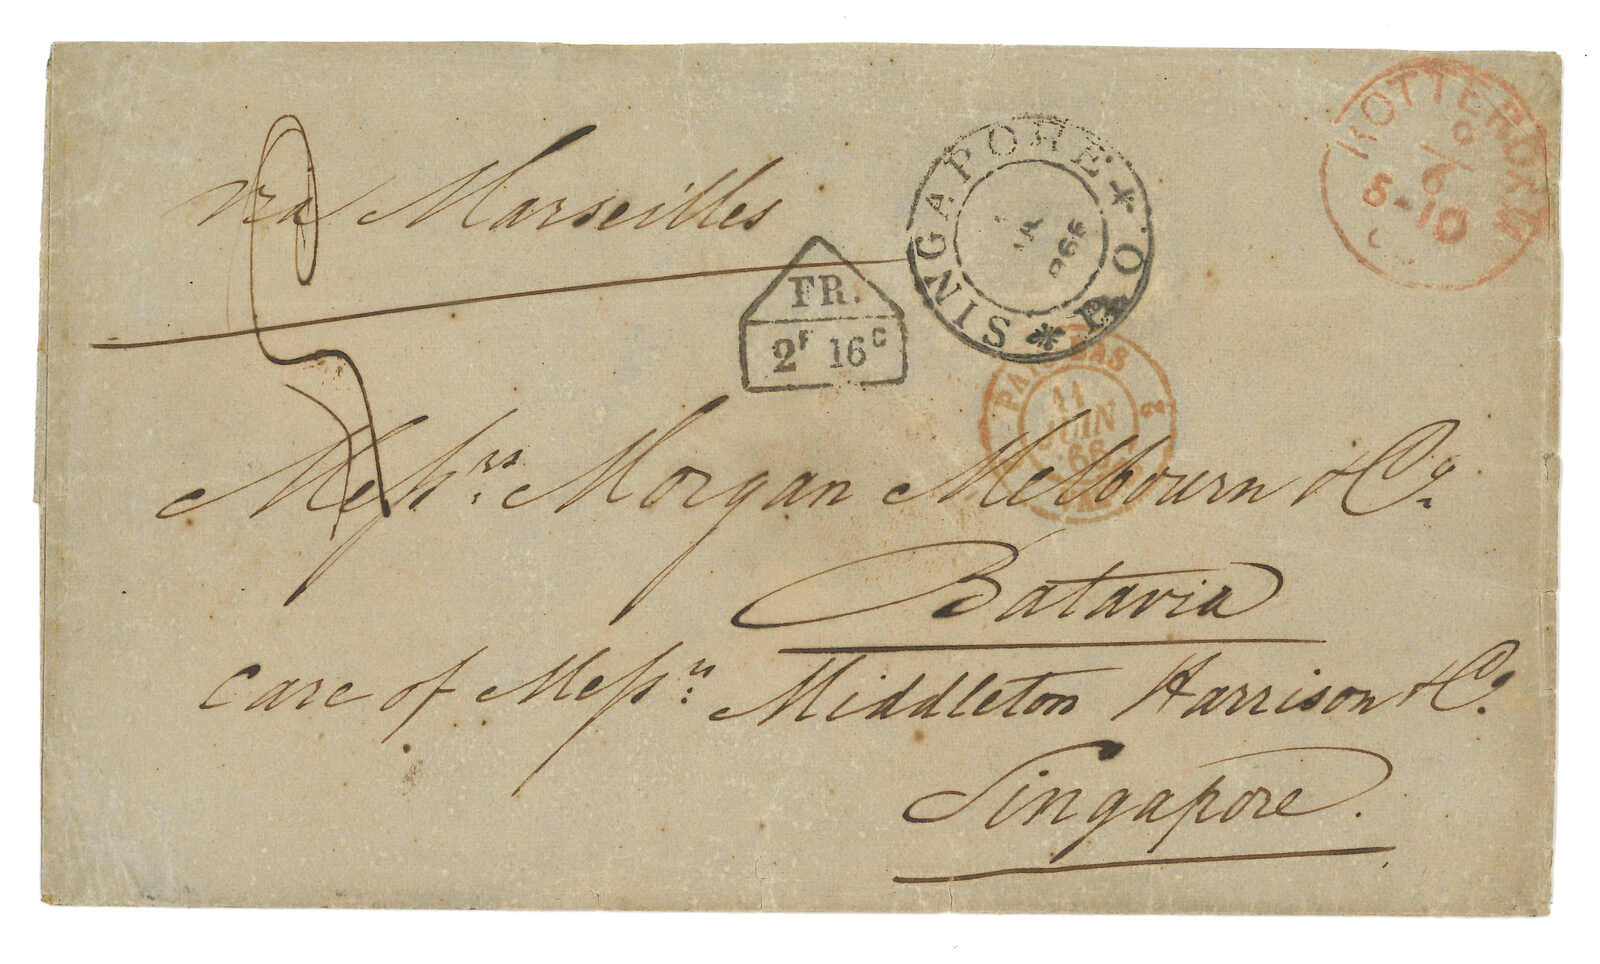 via Marseilles
FR.
2F 16C
SINGAPORE P.O.
ROTTERDAM
9/6
5-10
PAYS-BAS
2
11
JUIN
66
Messrs. Morgan Melbourn & Co.
Batavia
care of Messrs. Middleton Harrison & Co.
Singapore.